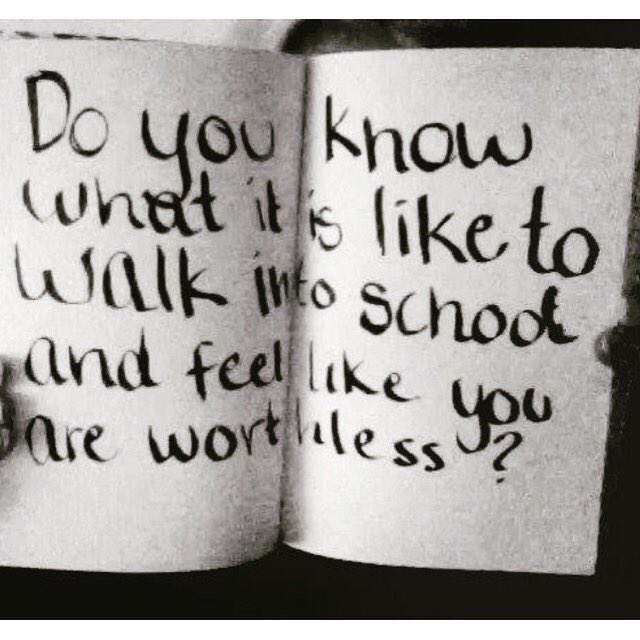 Do you know
what it is like to
walk into school
and feel like you
are worthless?